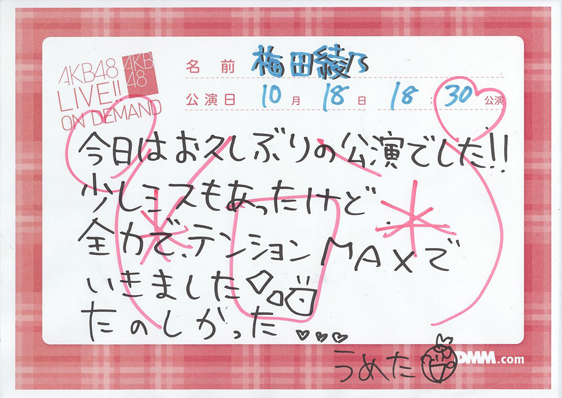 AKB48
LIVE!!
ON DEMAND
AKB
48
名前 梅田綾乃
公演日 10月 18日 18:30公演
今日はお久しぶりの公演でした!!
少しミスもあったけど
全力で、テンションMAXで
いきました
たのしかった...
うめた
DMM.com